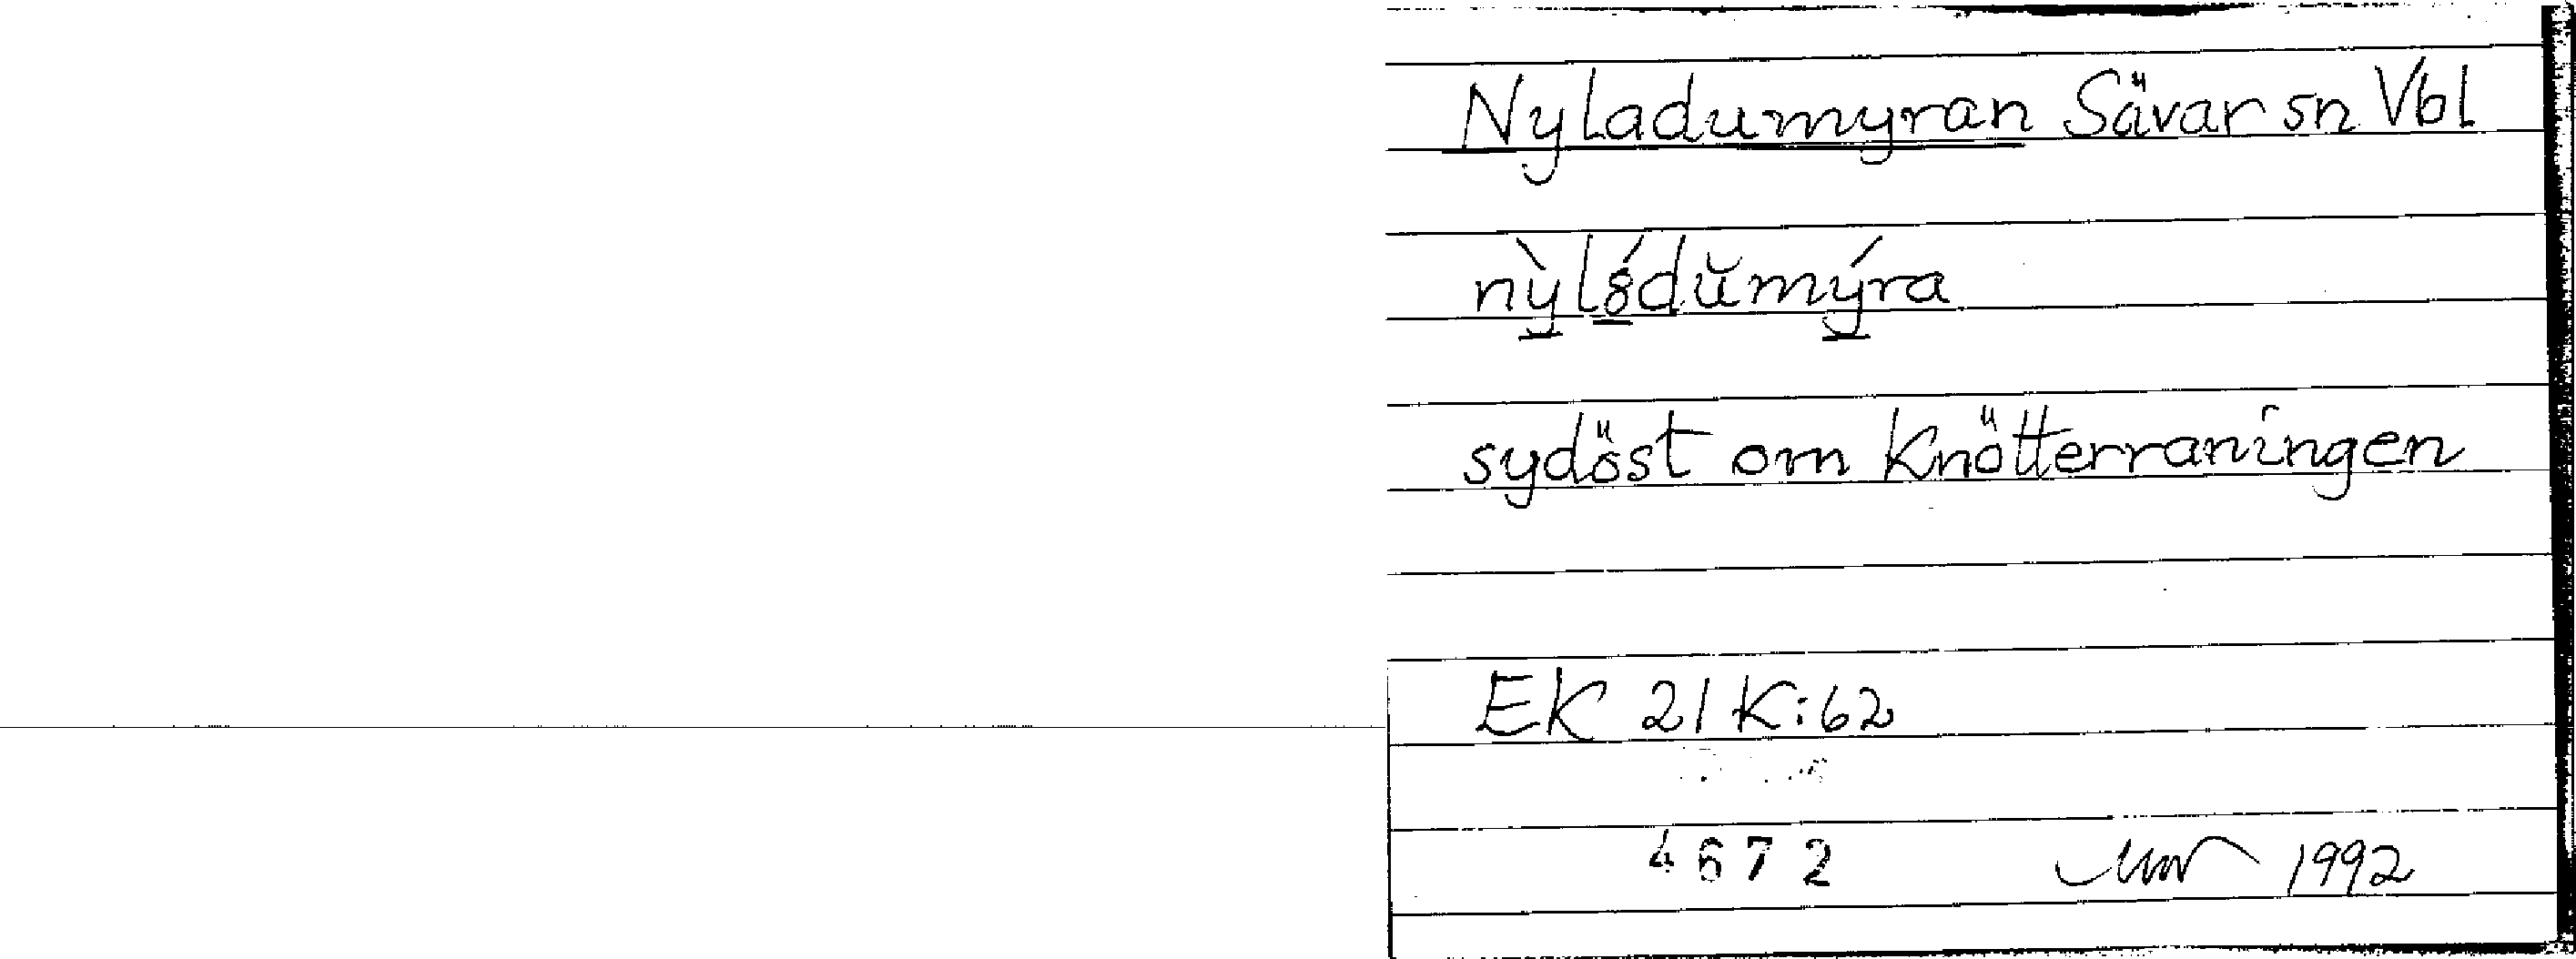 Nyladumyran Sävar sn Vbl
sydöst om Knötterraningen
EK 21K:62
4672 1992